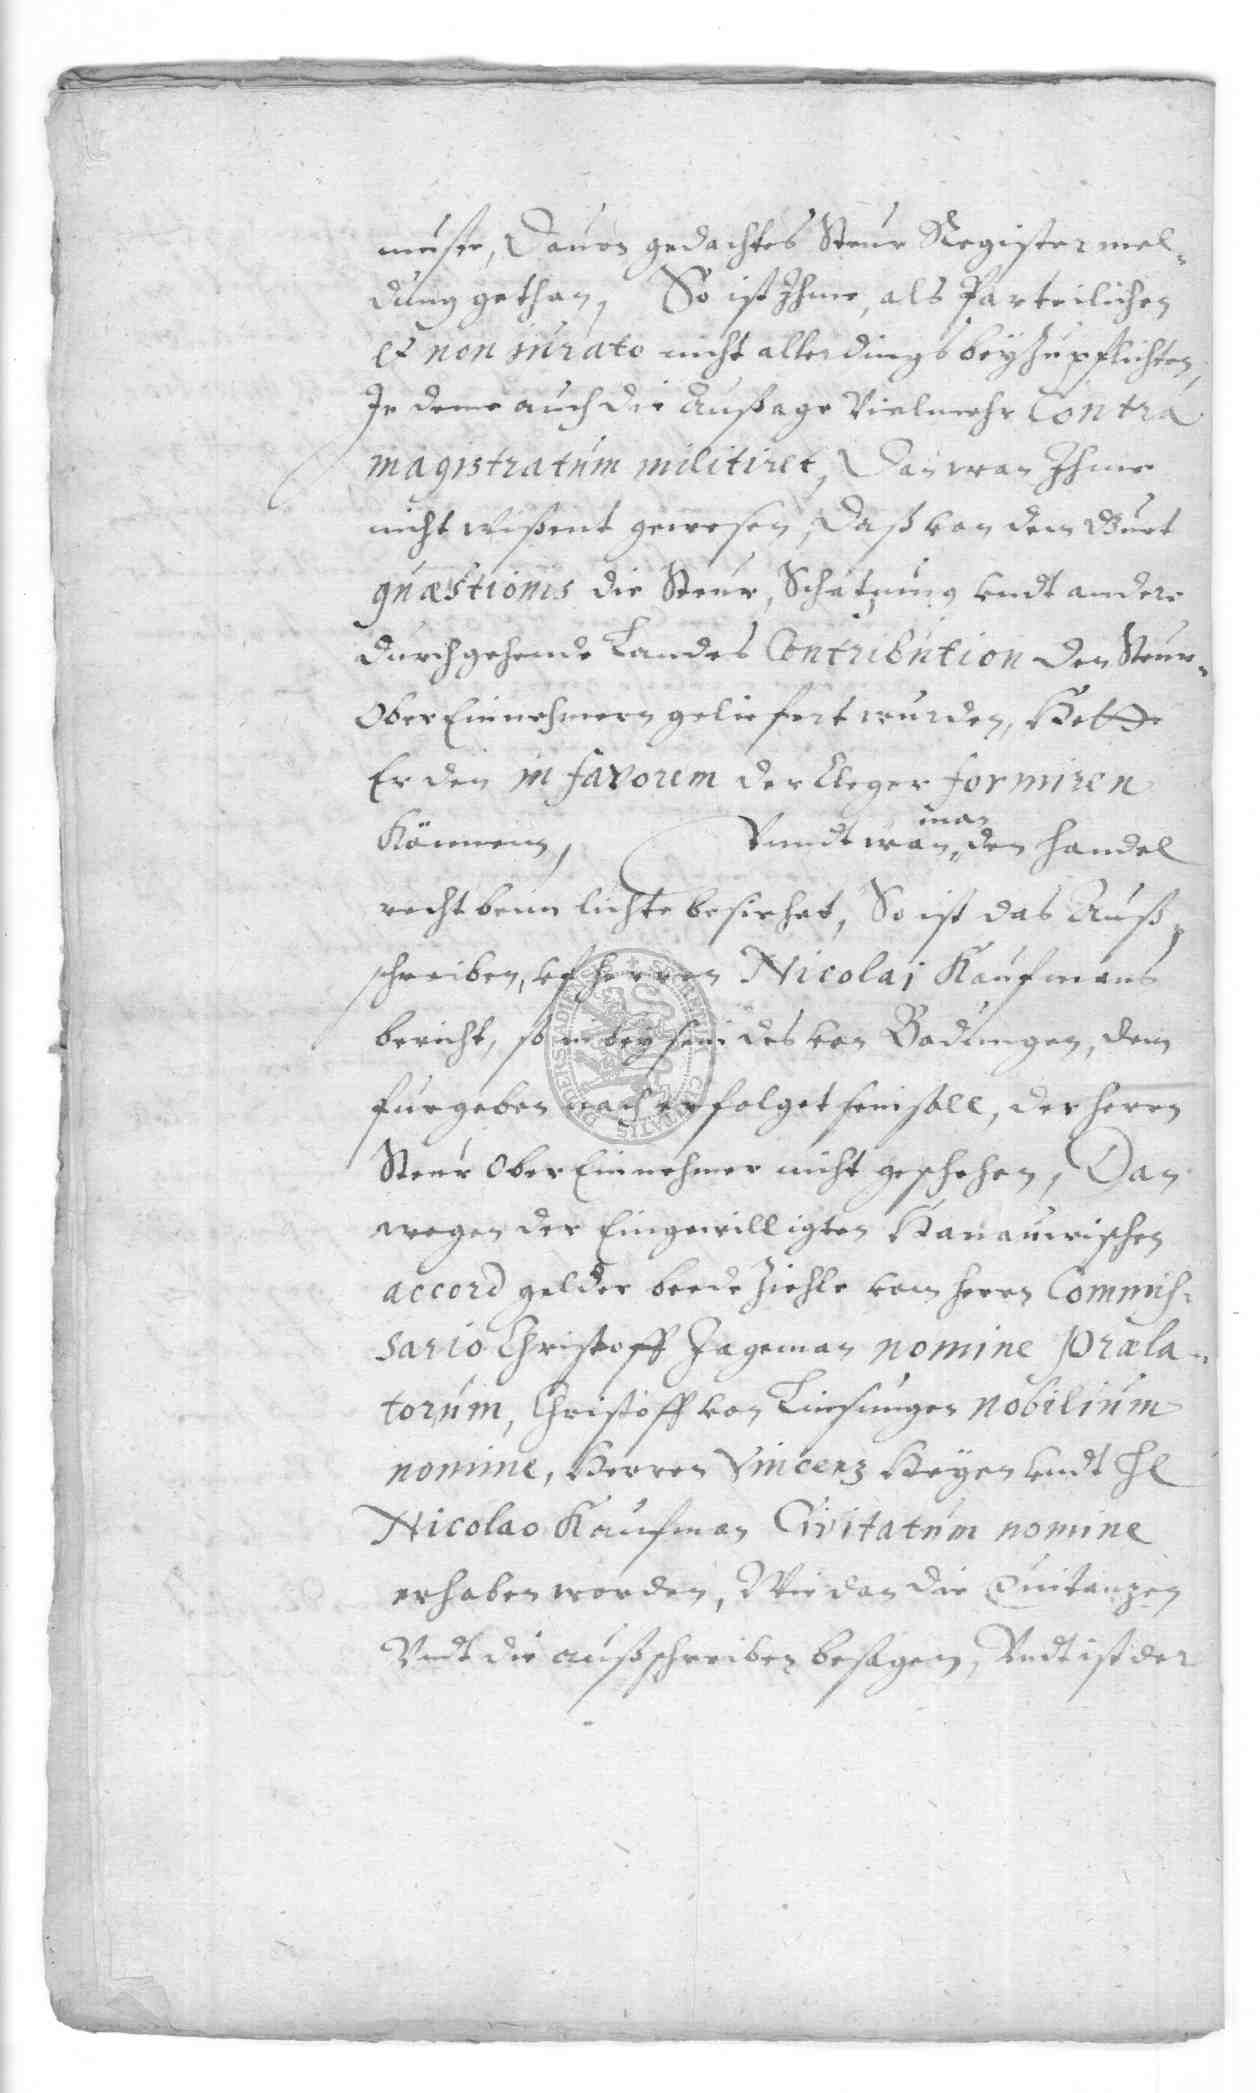 muste, Dauon gedachtes Steur Register mel-
dung gethan, So ist Ihme, als Parteilichen
et non iurato nicht allerdings beyzupflichten,
In deme auch die Außage Vielmehr Contra
magistratum militiret, Dan wan Ihme
nicht wißent gewesen, Daß von dem Guet
quæstionis die Steur, Schatzung vndt andere
durchgehende Landes Contribution den Steur-
Ober Einnehmern geliefert wurden, Hette
Er den in favorem der Cleger formiren
Können, Vnndt wan man den handel
recht beim lichte besiehet, So ist das Auß
schreiben, vf herren Nicolai Kaufmans
bericht, so in beysein des von Bodungen, dem
furgeben nach erfolget sein soll, der herrn
Steur Ober Einnehmer nicht geschehen, Dan
wegen der Eingewilligten Hanauwischen
accord gelder beede Ziehle vom herrn Commis-
sario Christoff Jageman nomine Præla-
torum, Christoff von Linsungen nobilium
nomine, Herren Vincenz Heyen vndt H
Nicolao Kaufman Civitatum nomine
erhaben worden, Wie dan die Quitanzen
Vndt die außschreiben besagen, Vndt ist der
SIGILLUM CIVITATIS DUDERSTADIENSIS